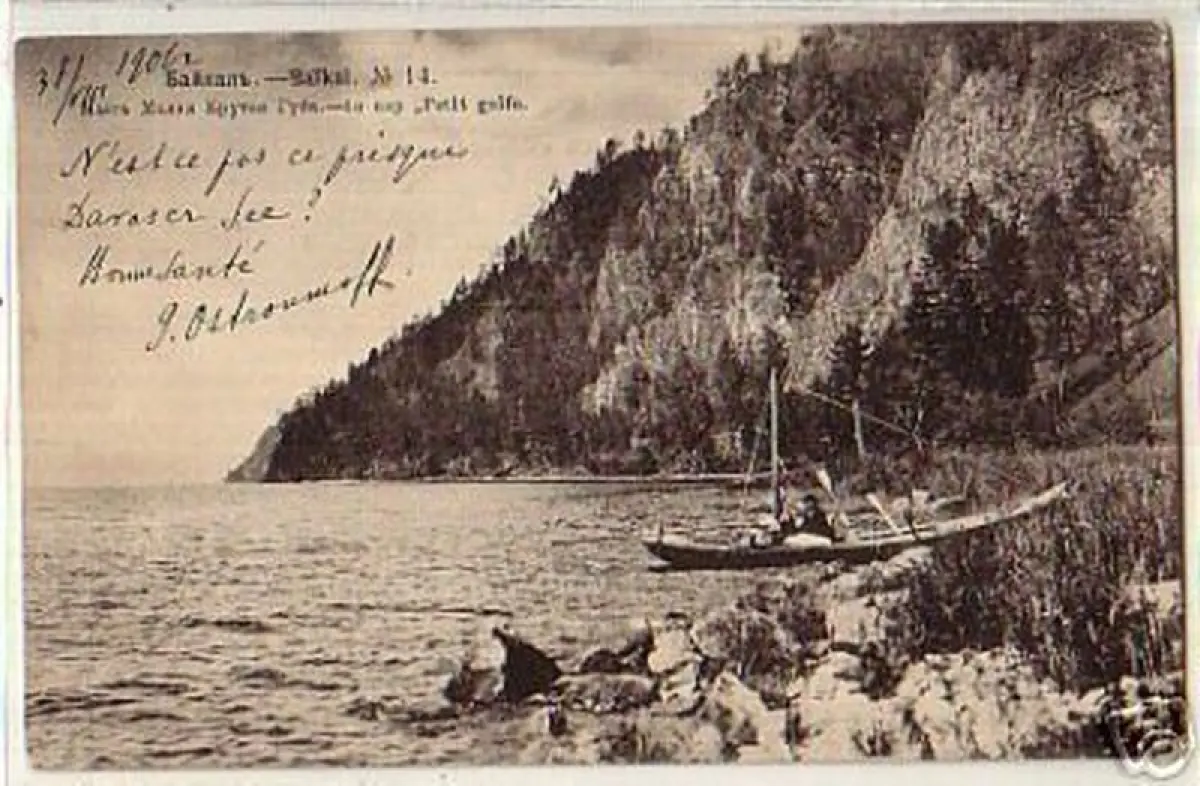 31/VIII 1906 г
Байкалъ.—Baïkal. № 14.
Мысъ Малая Крутая Губа.—Au cap „Petit golfe.
N'est ce pas ce presque
Davoser See?
Bonne santé
J. Ostroumoff.